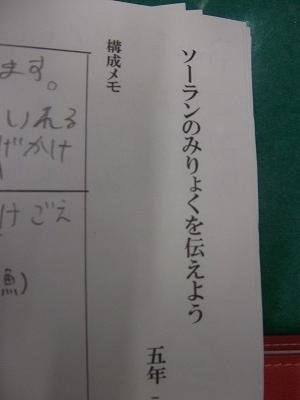 ソーランのみりょくを伝えよう
五年
構成メモ
ます。
いれる
げかけ
けごえ
魚)